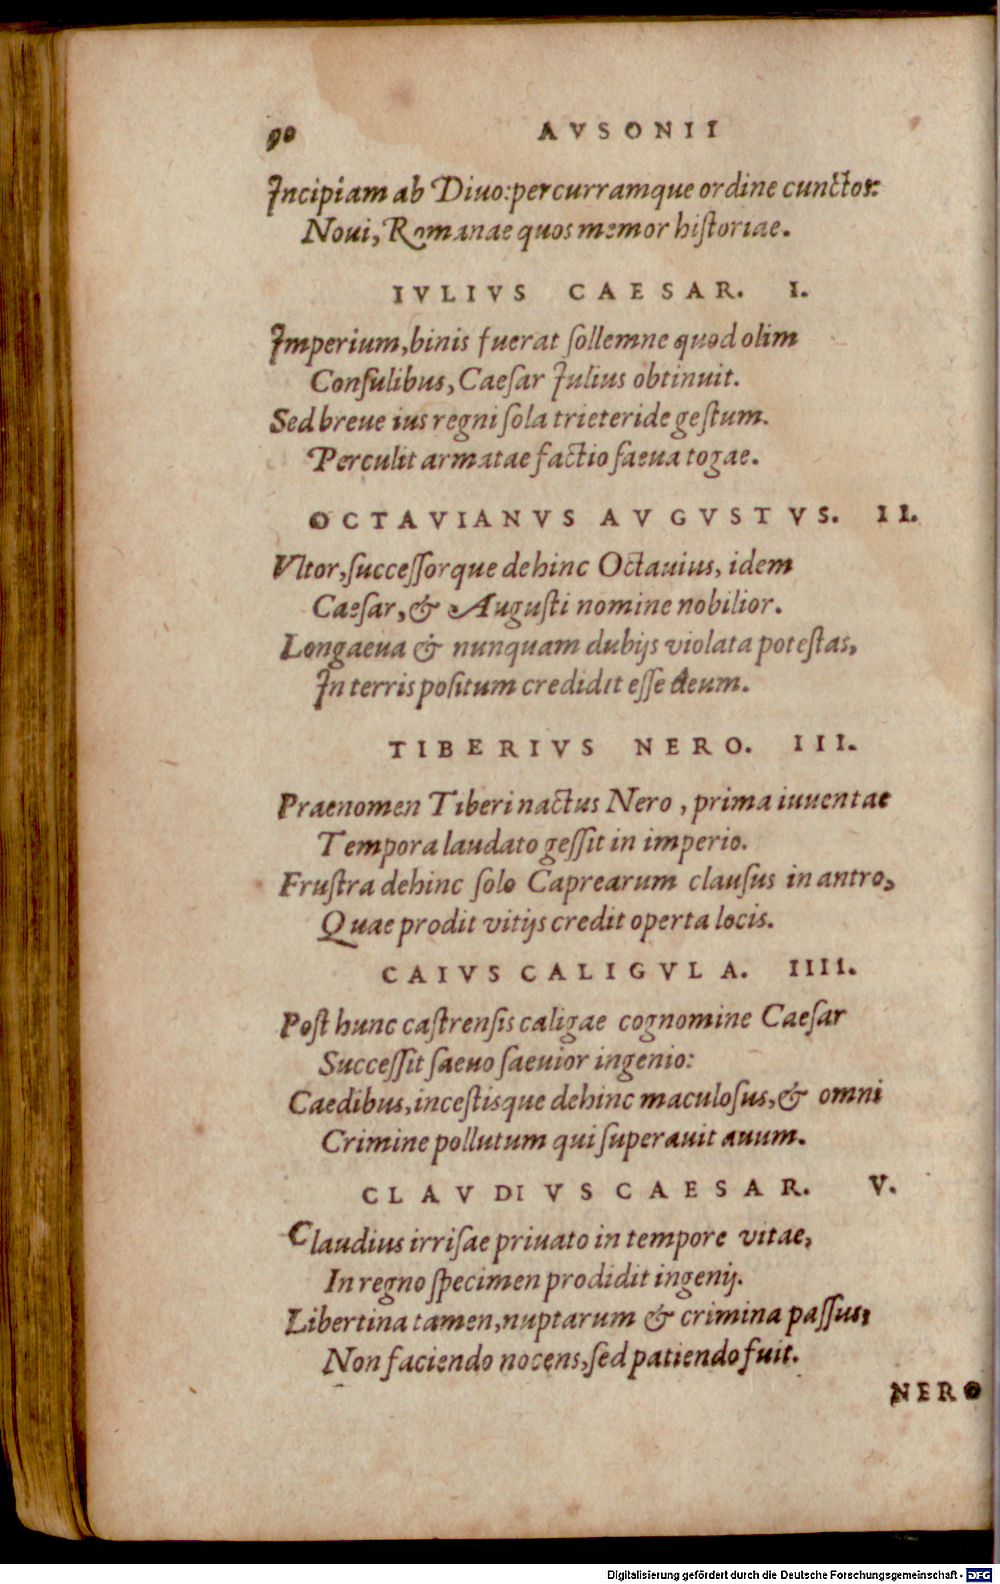 90 AVSONII
Incipiam ab Diuo: percurramque ordine cunctos:
Noui, Romanae quos memor historiae.
IVLIVS CAESAR. I.
Imperium, binis fuerat sollemne quod olim
Consulibus, Caesar Iulius obtinuit.
Sed breue ius regni sola trieteride gestum.
Perculit armatae factio saeua togae.
OCTAVIANVS AVGVSTVS. II.
Vltor, successorque dehinc Octauius, idem
Caesar, & Augusti nomine nobilior.
Longaeua & nunquam dubijs violata potestas,
In terris positum credidit esse deum.
TIBERIVS NERO. III.
Praenomen Tiberi nactus Nero, prima iuuentae
Tempora laudato gessit in imperio.
Frustra dehinc solo Caprearum clausus in antro,
Quae prodit vitijs credit operta locis.
CAIVS CALIGVLA. IIII.
Post hunc castrensis caligae cognomine Caesar
Successit saeuo saeuior ingenio:
Caedibus, incestisque dehinc maculosus, & omni
Crimine pollutum qui superauit auum.
CLAVDIVS CAESAR. V.
Claudius irrisae priuato in tempore vitae,
In regno specimen prodidit ingenij.
Libertina tamen, nuptarum & crimina passus,
Non faciendo nocens, sed patiendo fuit.
NERO
Digitalisierung gefördert durch die Deutsche Forschungsgemeinschaft - DFG